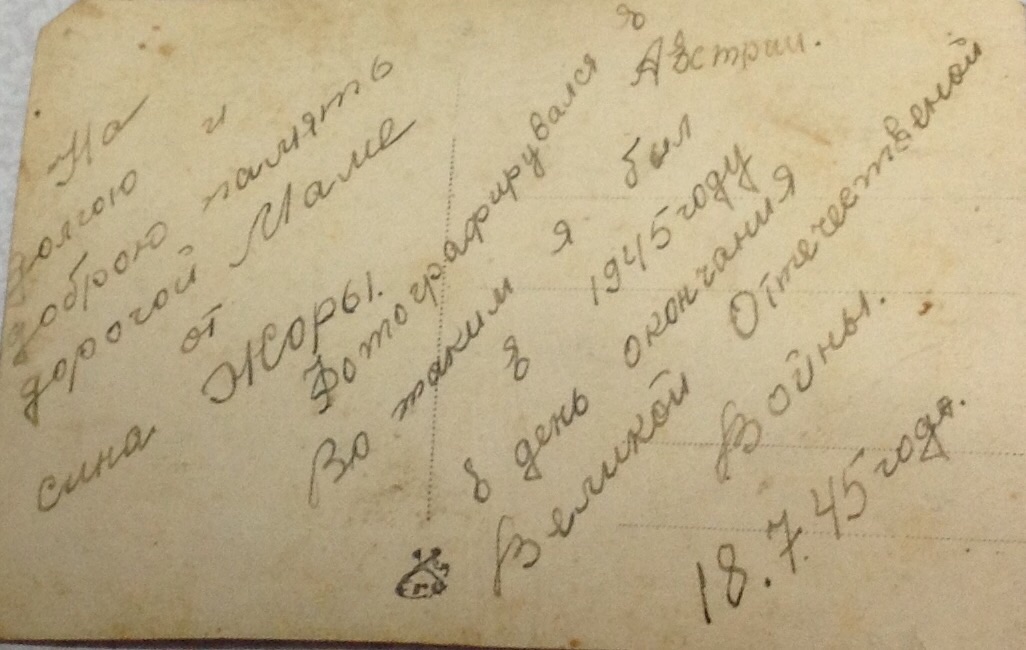 На
долгою и
доброю память
дорогой Маме
от
сина Жоры.
Фотографирувался в
Австрии.
Во таким я был
в 1945 году
в день окончания
Великой Отечественой
Войны.
18.7.45 года.